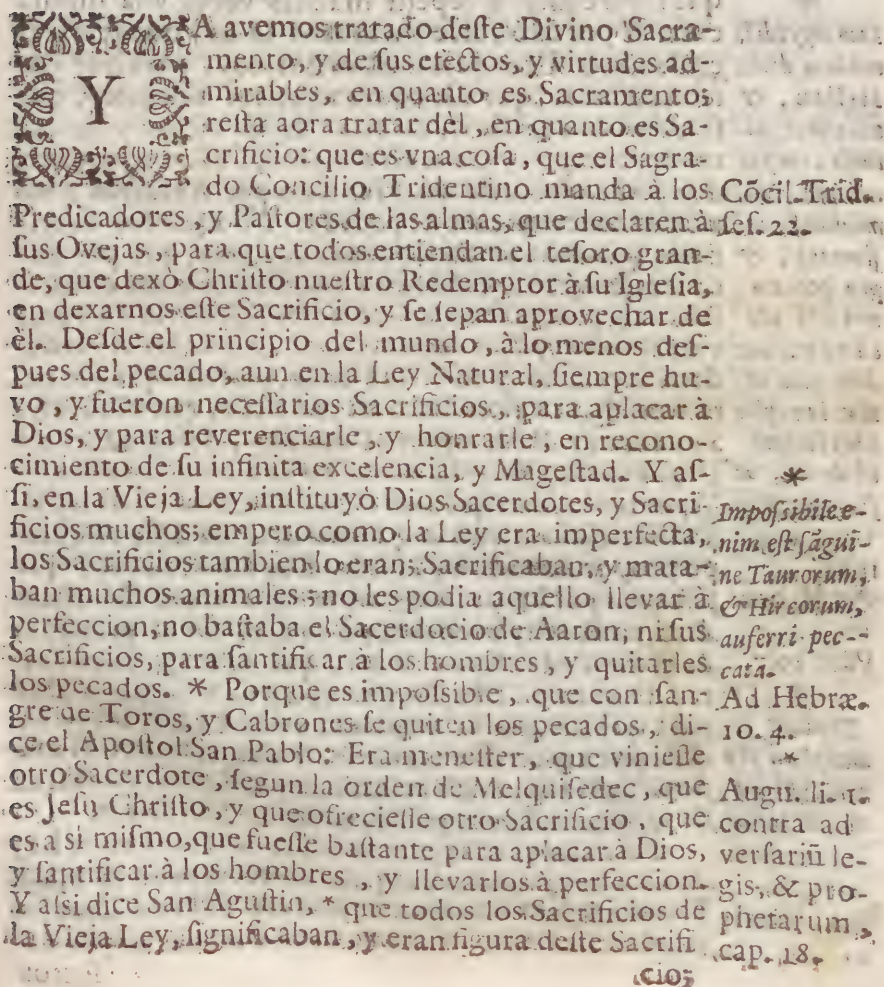 YA avemos tratado deste Divino Sacra-
mento, y de sus efectos, y virtudes ad-
mirables, en quanto es Sacramento;
resta aora tratar dèl, en quanto es Sa-
crificio: que es vna cosa, que el Sagra-
do Concilio Tridentino manda à los
Predicadores, y Pastores de las almas, que declaren à
sus Ovejas, para que todos entiendan el tesoro gran-
de, que dexò Christo nuestro Redemptor à su Iglesia,
en dexarnos este Sacrificio, y se sepan aprovechar de
èl. Desde el principio del mundo, à lo menos des-
pues del pecado, aun en la Ley Natural, siempre hu-
vo, y fueron necessarios Sacrificios, para aplacar à
Dios, y para reverenciarle, y honrarle, en recono-
cimiento de su infinita excelencia, y Magestad. Y as-
si, en la Vieja Ley, instituyò Dios Sacerdotes, y Sacri-
ficios muchos; empero como la Ley era imperfecta,
los Sacrificios tambien lo eran; Sacrificaban, y mata-
ban muchos animales; no les podia aquello llevar à
perfeccion, no bastaba el Sacerdocio de Aaron, ni sus
Sacrificios, para santificar à los hombres, y quitarles
los pecados. * Porque es impossible, que con san-
gre de Toros, y Cabrones se quiten los pecados, di-
ce el Apostol San Pablo: Era menester, que viniesse
otro Sacerdote, segun la orden de Melquisedec, que
es Jesu Christo, y que ofreciesse otro Sacrificio, que
es a si mismo, que fuesse bastante para aplacar à Dios,
y santificar à los hombres, y llevarlos à perfeccion.
Y assi dice San Agustin, * que todos los Sacrificios de
la Vieja Ley, significaban, y eran figura deste Sacrifi
cio;
Cōcil. Trid.
ses. 22.
*
Impossibile e-
nim est sāgui-
ne Taurorum,
& Hircorum,
auferri pec-
cata.
Ad Hebræ.
10. 4.
*
Augu. li. 1.
contra ad
versariū le-
gis, & pro-
phetarum,
cap. 18.